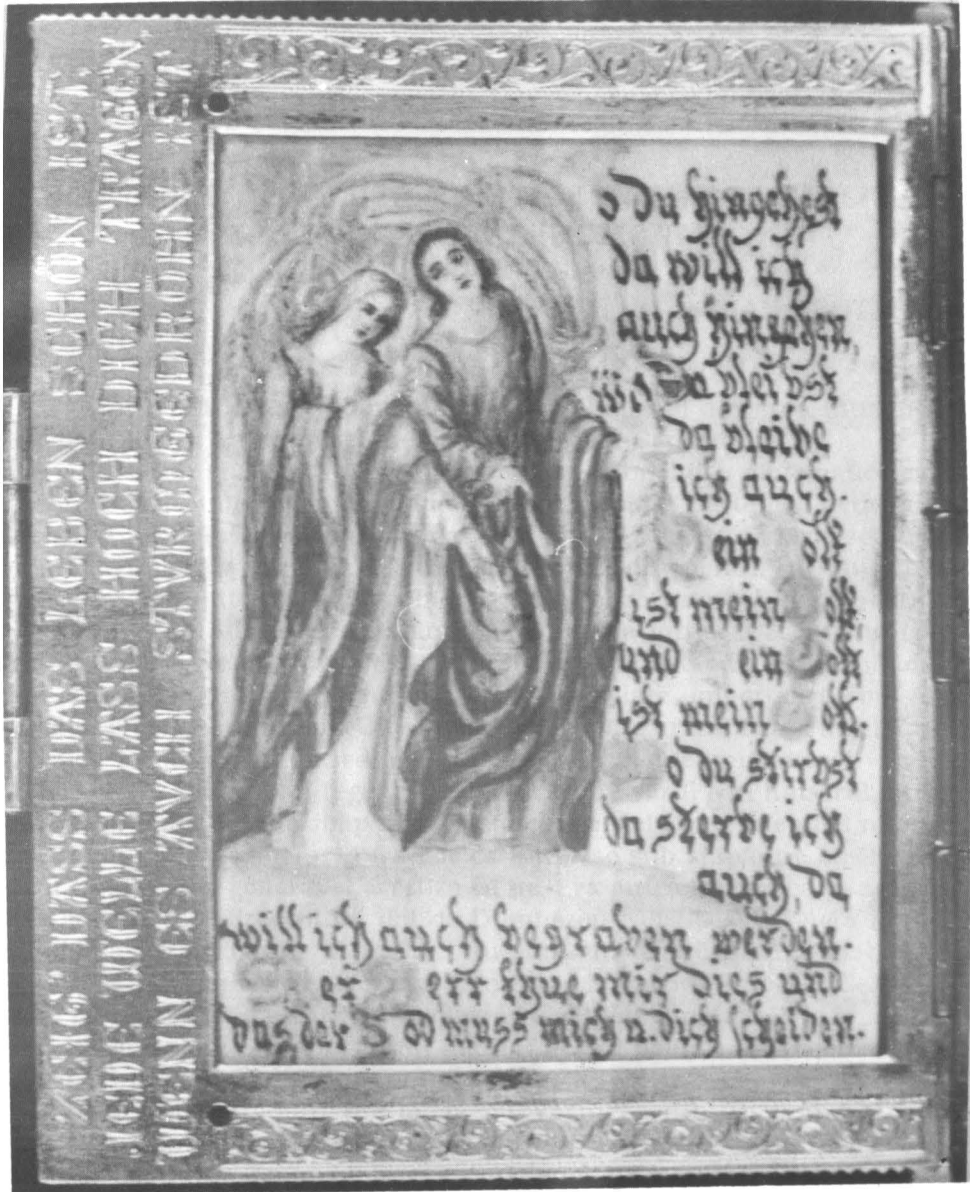 ZEIG' DASS DAS LEBEN SCHÖN IST,
JEDE WELLE LASS HOCH DICH TRAGEN,
WENN ES AVCH STVRMBEDROHN IST
o du hingehest
da will ich
auch hingehen,
wo Du bleibst
da bleibe
ich auch.
ein olk
ist mein olk
und ein ott
ist mein ott.
o du stirbst
da sterbe ich
auch, da
will ich auch begraben werden.
er err thue mir dies und
das der Tod muss mich u. dich scheiden.